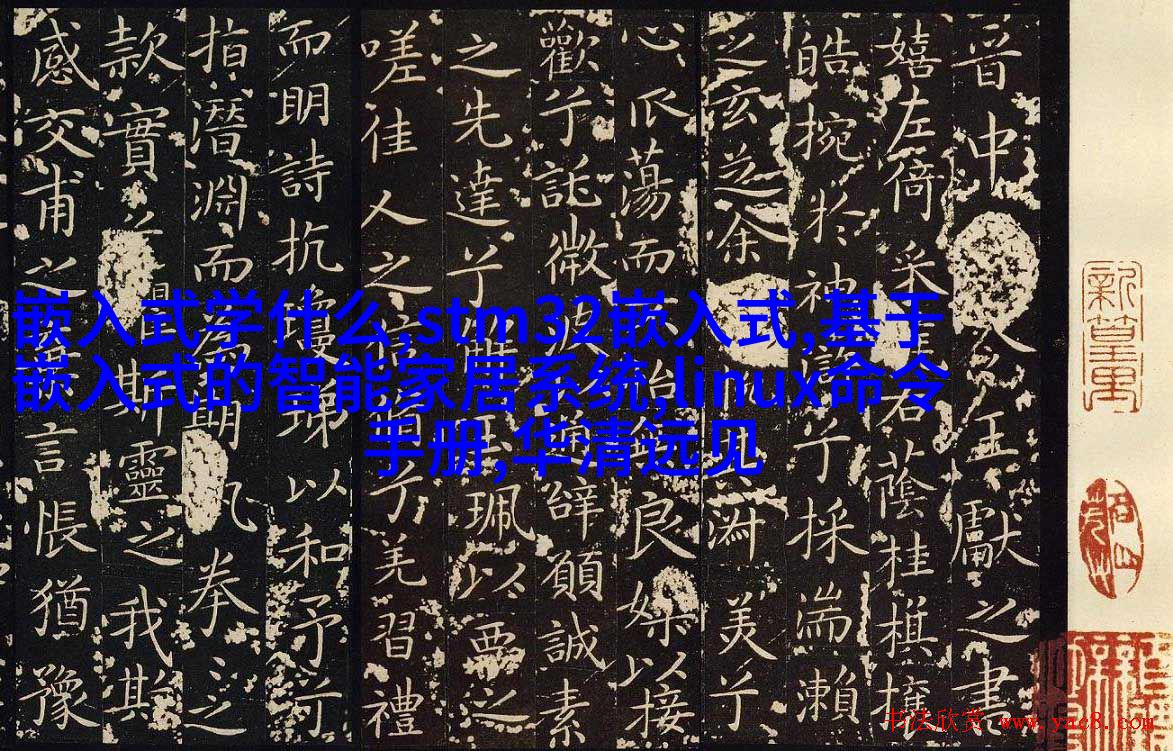 嵌入式学什么,stm32嵌入式,基于
嵌入式的智能家居系统,linux命令
手册,华清远见
晋中令王獻之書
嬉左倚采旄右蔭桂棋攘
皓捥於神滸兮採湍瀨
之玄芝余淑美兮
心蕩而不怡良媒以接
歡兮託微波辭願誠素
之先達兮解玉珮以要之
嗟佳人之信脩兮羌習禮
而明詩抗瓊珶以和予兮
指潛淵而為期拳之
款實之斯靈之我欺
感交甫之言悵猶豫
书法欣赏 www.yac8.com